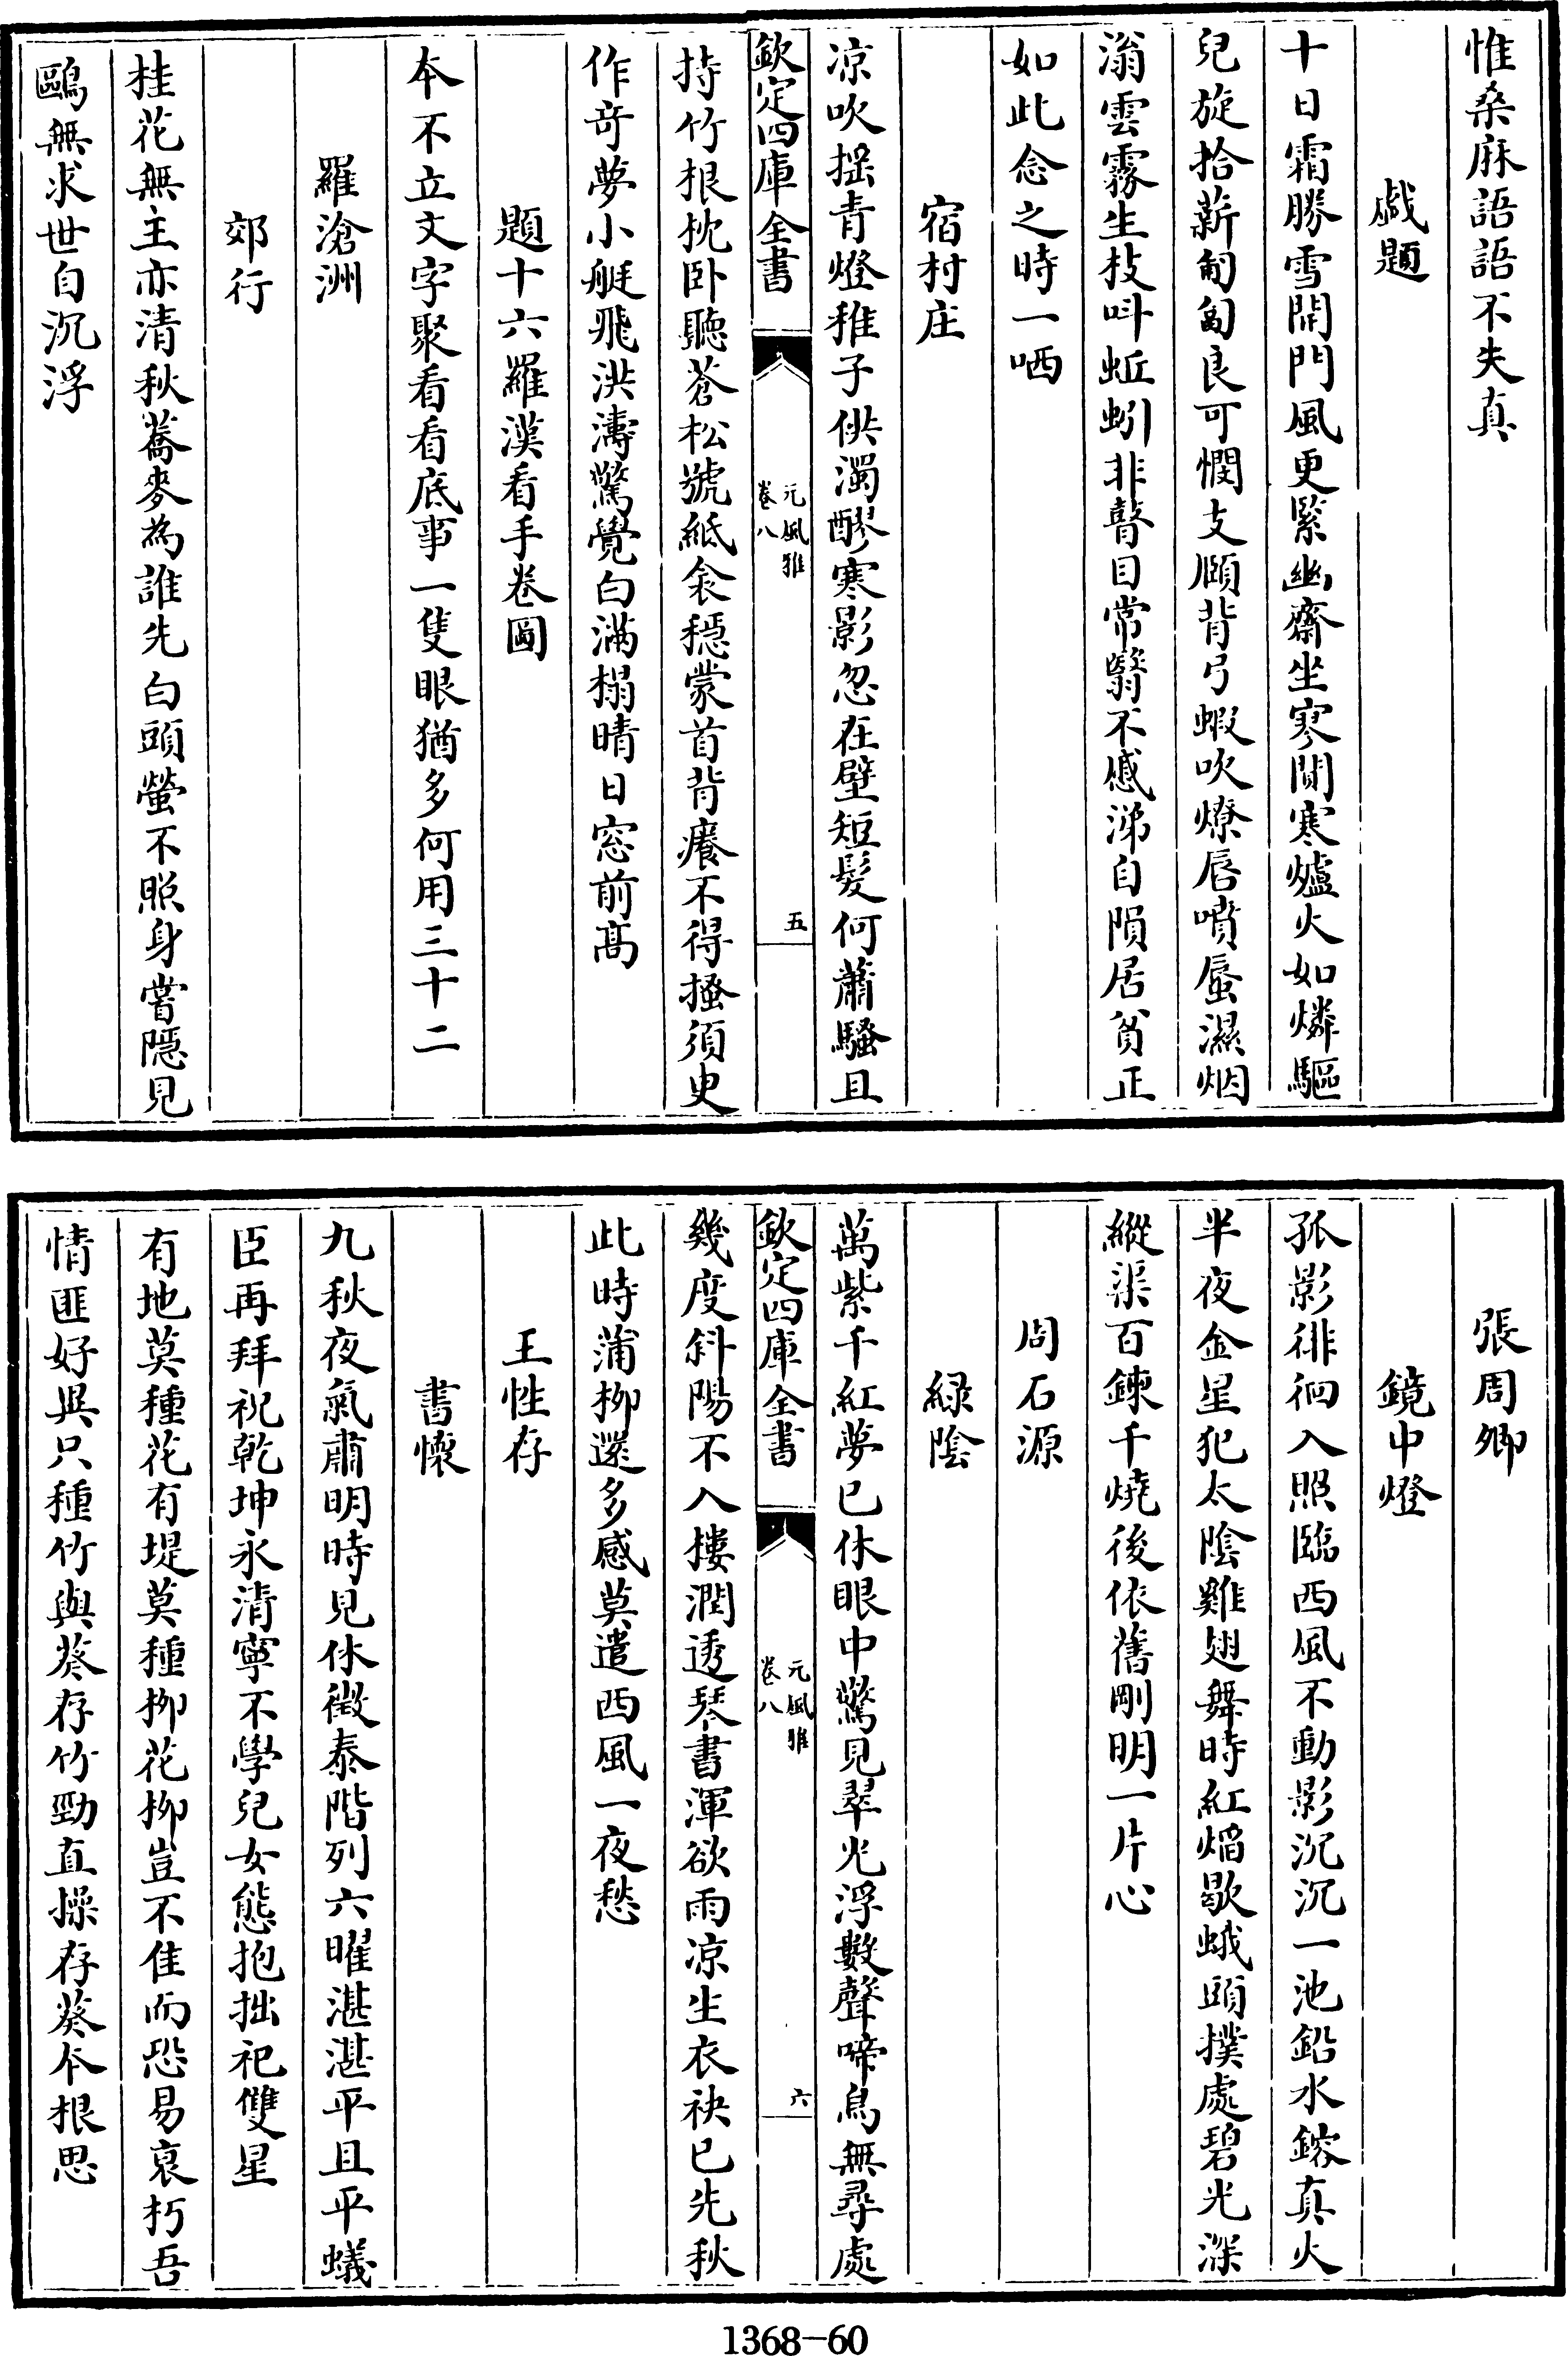 惟桑麻語語不失真
戲題
十日霜勝雪開門風更緊幽齋坐寒閒寒爐火如燐驅
兒旋拾薪匍匐良可憫支頤背弓蝦吹燎唇噴蜃濕烟
滃雲霧生枝叫蚯蚓非瞽目常翳不慼涕自隕居貧正
如此念之時一哂
宿村庄
凉吹摇青燈稚子供濁醪寒影忽在壁短髮何蕭騷且
欽定四庫全書
元風雅
卷八
五
持竹根枕卧聽蒼松號紙衾穏蒙首背癢不得搔須史
作竒夢小艇飛洪濤驚覺白滿榻晴日窓前髙
題十六羅漢看手卷圖
本不立文字聚看看底事一隻眼猶多何用三十二
羅滄洲
郊行
桂花無主亦清秋蕎麥為誰先白頭螢不照身嘗隱見
鷗無求世自沉浮
張周卿
鏡中燈
孤影徘徊入照臨西風不動影沉沉一池鉛水鎔真火
半夜金星犯太陰雞翅舞時紅燄歇蛾頭撲處碧光深
縱渠百鍊千燒後依舊剛明一片心
周石源
緑陰
萬紫千紅夢已休眼中驚見翠光浮數聲啼鳥無尋處
欽定四庫全書
元風雅
卷八
六
幾度斜陽不入樓潤透琴書渾欲雨凉生衣袂已先秋
此時蒲柳還多感莫遣西風一夜愁
王性存
書懷
九秋夜氣肅明時見休徴泰階列六曜湛湛平且平蟻
臣再拜祝乾坤永清寧不學兒女態抱拙祀雙星
有地莫種花有堤莫種柳花柳豈不佳而恐易衰朽吾
情匪好異只種竹與葵存竹勁直操存葵本根思
1368-60